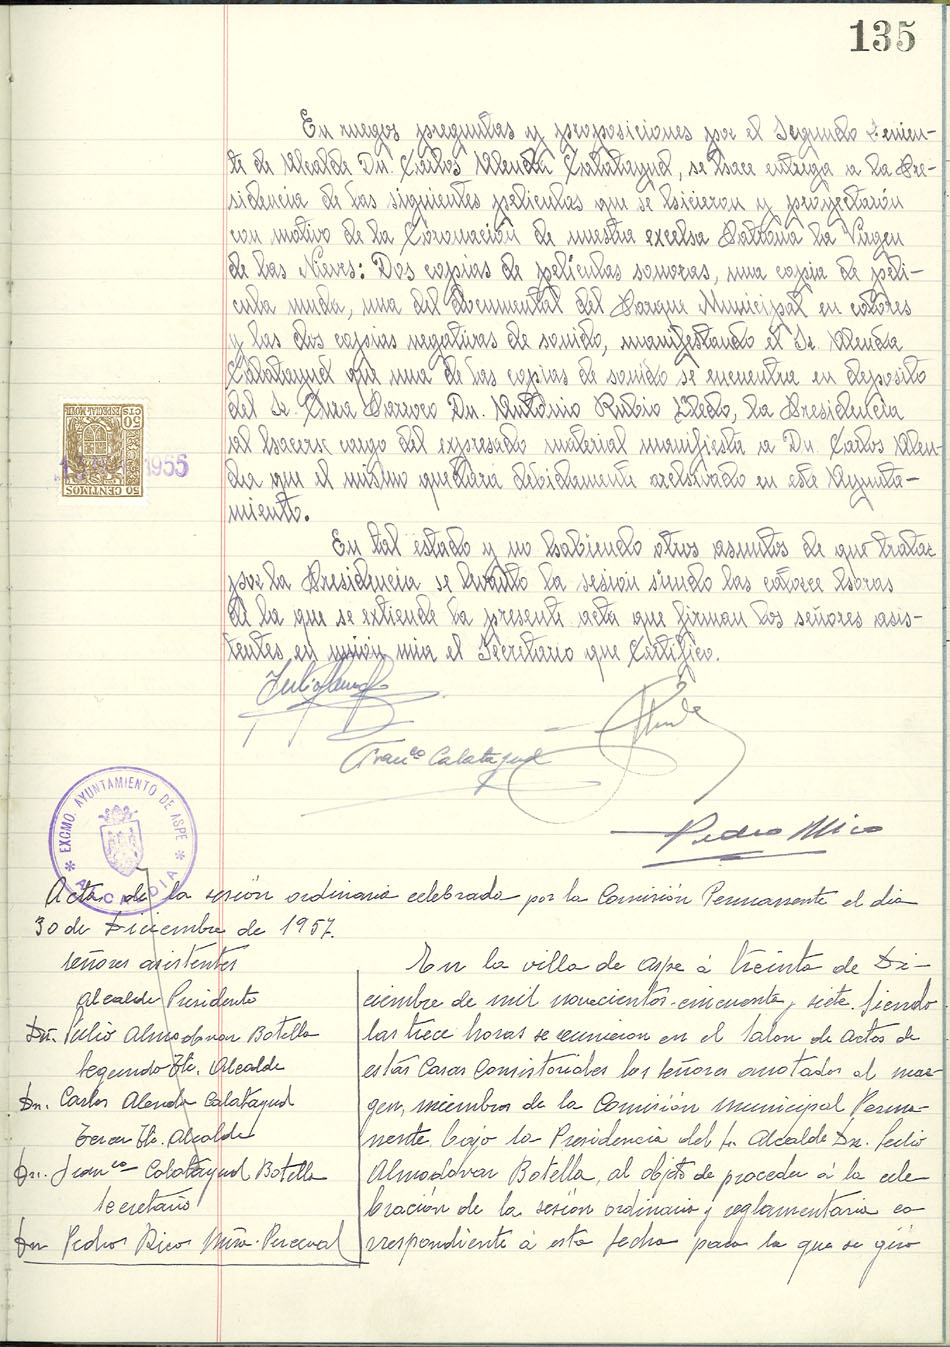 135
En ruegos preguntas y proposiciones por el Segundo Tenien-
te de Alcalde Dn. Carlos Alenda Calatayud, se hace entrega a la Pre-
sidencia de las siguientes peliculas que se hicieron y proyectarón
con motivo de la Coronación de nuestra excelsa Patrona la Virgen
de las Nieves: Dos copias de películas sonoras, una copia de pelí-
cula muda, una del documental del Parque Municipal en colores
y las dos copias negativas de sonido, manifestando el Sr. Alenda
Calatayud que una de las copias de sonido se encuentra en deposito
del Sr. Cura Parroco Dn. Antonio Rubio Lledo, la Presidencia
al hacerse cargo del expresado material manifiesta a Dn. Carlos Alen-
da que el mismo quedará debidamente archivado en este Ayunta-
miento.
50 CENTIMOS
ESPECIAL MOVIL
50 CTS
1955
En tal estado y no habiendo otros asuntos de que tratar
por la Presidencia se levanto la sesion siendo las catorce horas
de la que se extiende la presente acta que firman los señores asis-
tentes, en unión mia el Secretario que Certifico.
Franco Calatayud
Pedro Rico
EXCMO. AYUNTAMIENTO DE ASPE
* ALCALDIA *
Acta de la sesión ordinaria celebrada por la Comisión Permanente el dia
30 de Diciembre de 1957.
señores asistentes
Alcalde Presidente
Dn. Julio Almodovar Botella
Segundo Tte. Alcalde
Dn. Carlos Alenda Calatayud
Tercer Tte. Alcalde
Dn. Franco Calatayud Botella
Secretario
Dn Pedro Rico Miró-Perceval
En la villa de Aspe á treinta de Di-
ciembre de mil novecientos cincuenta y siete. Siendo
las trece horas se reunieron en el Salon de Actos de
estas Casas Consistoriales los señores anotados al mar-
gen, miembros de la Comisión Municipal Perma-
nente, bajo la Presidencia del Sr. Alcalde Dn. Julio
Almodovar Botella, al objeto de proceder á la cele-
bración de la sesión ordinaria y reglamentaria co
rrespondiente á esta fecha para la que se giró